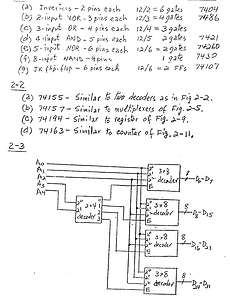 (a) Inverters - 2 pins each 12/2 = 6 gates 7404
(b) 2-input XOR - 3 pins each 12/3 = 4 gates 7486
(c) 3-input OR - 4 pins each 12/4 = 3 gates
(d) 4-input AND - 5 pins each 12/5 2 gates 7421
(e) 5-input NOR - 6 pins each 12/6 = 2 gates 74260
(f) 8-input NAND - 9 pins 1 gate 7430
(g) JK flip-flop - 6 pins each 12/6 = 2 FFs 74107
2-2
(a) 74155 - Similar to two decoders as in Fig 2-2.
(b) 74157 - Similar to multiplexers of Fig. 2-5.
(c) 74194 - Similar to register of Fig. 2-9.
(d) 74163 - Similar to counter of Fig. 2-11.
2-3
A0
A1
A2
A3
A4
2×4
decoder
3×8
decoder
E
8
D0-D7
3×8
decoder
E
8
D8-D15
3×8
decoder
E
8
D16-D23
3×8
decoder
E
8
D24-D31